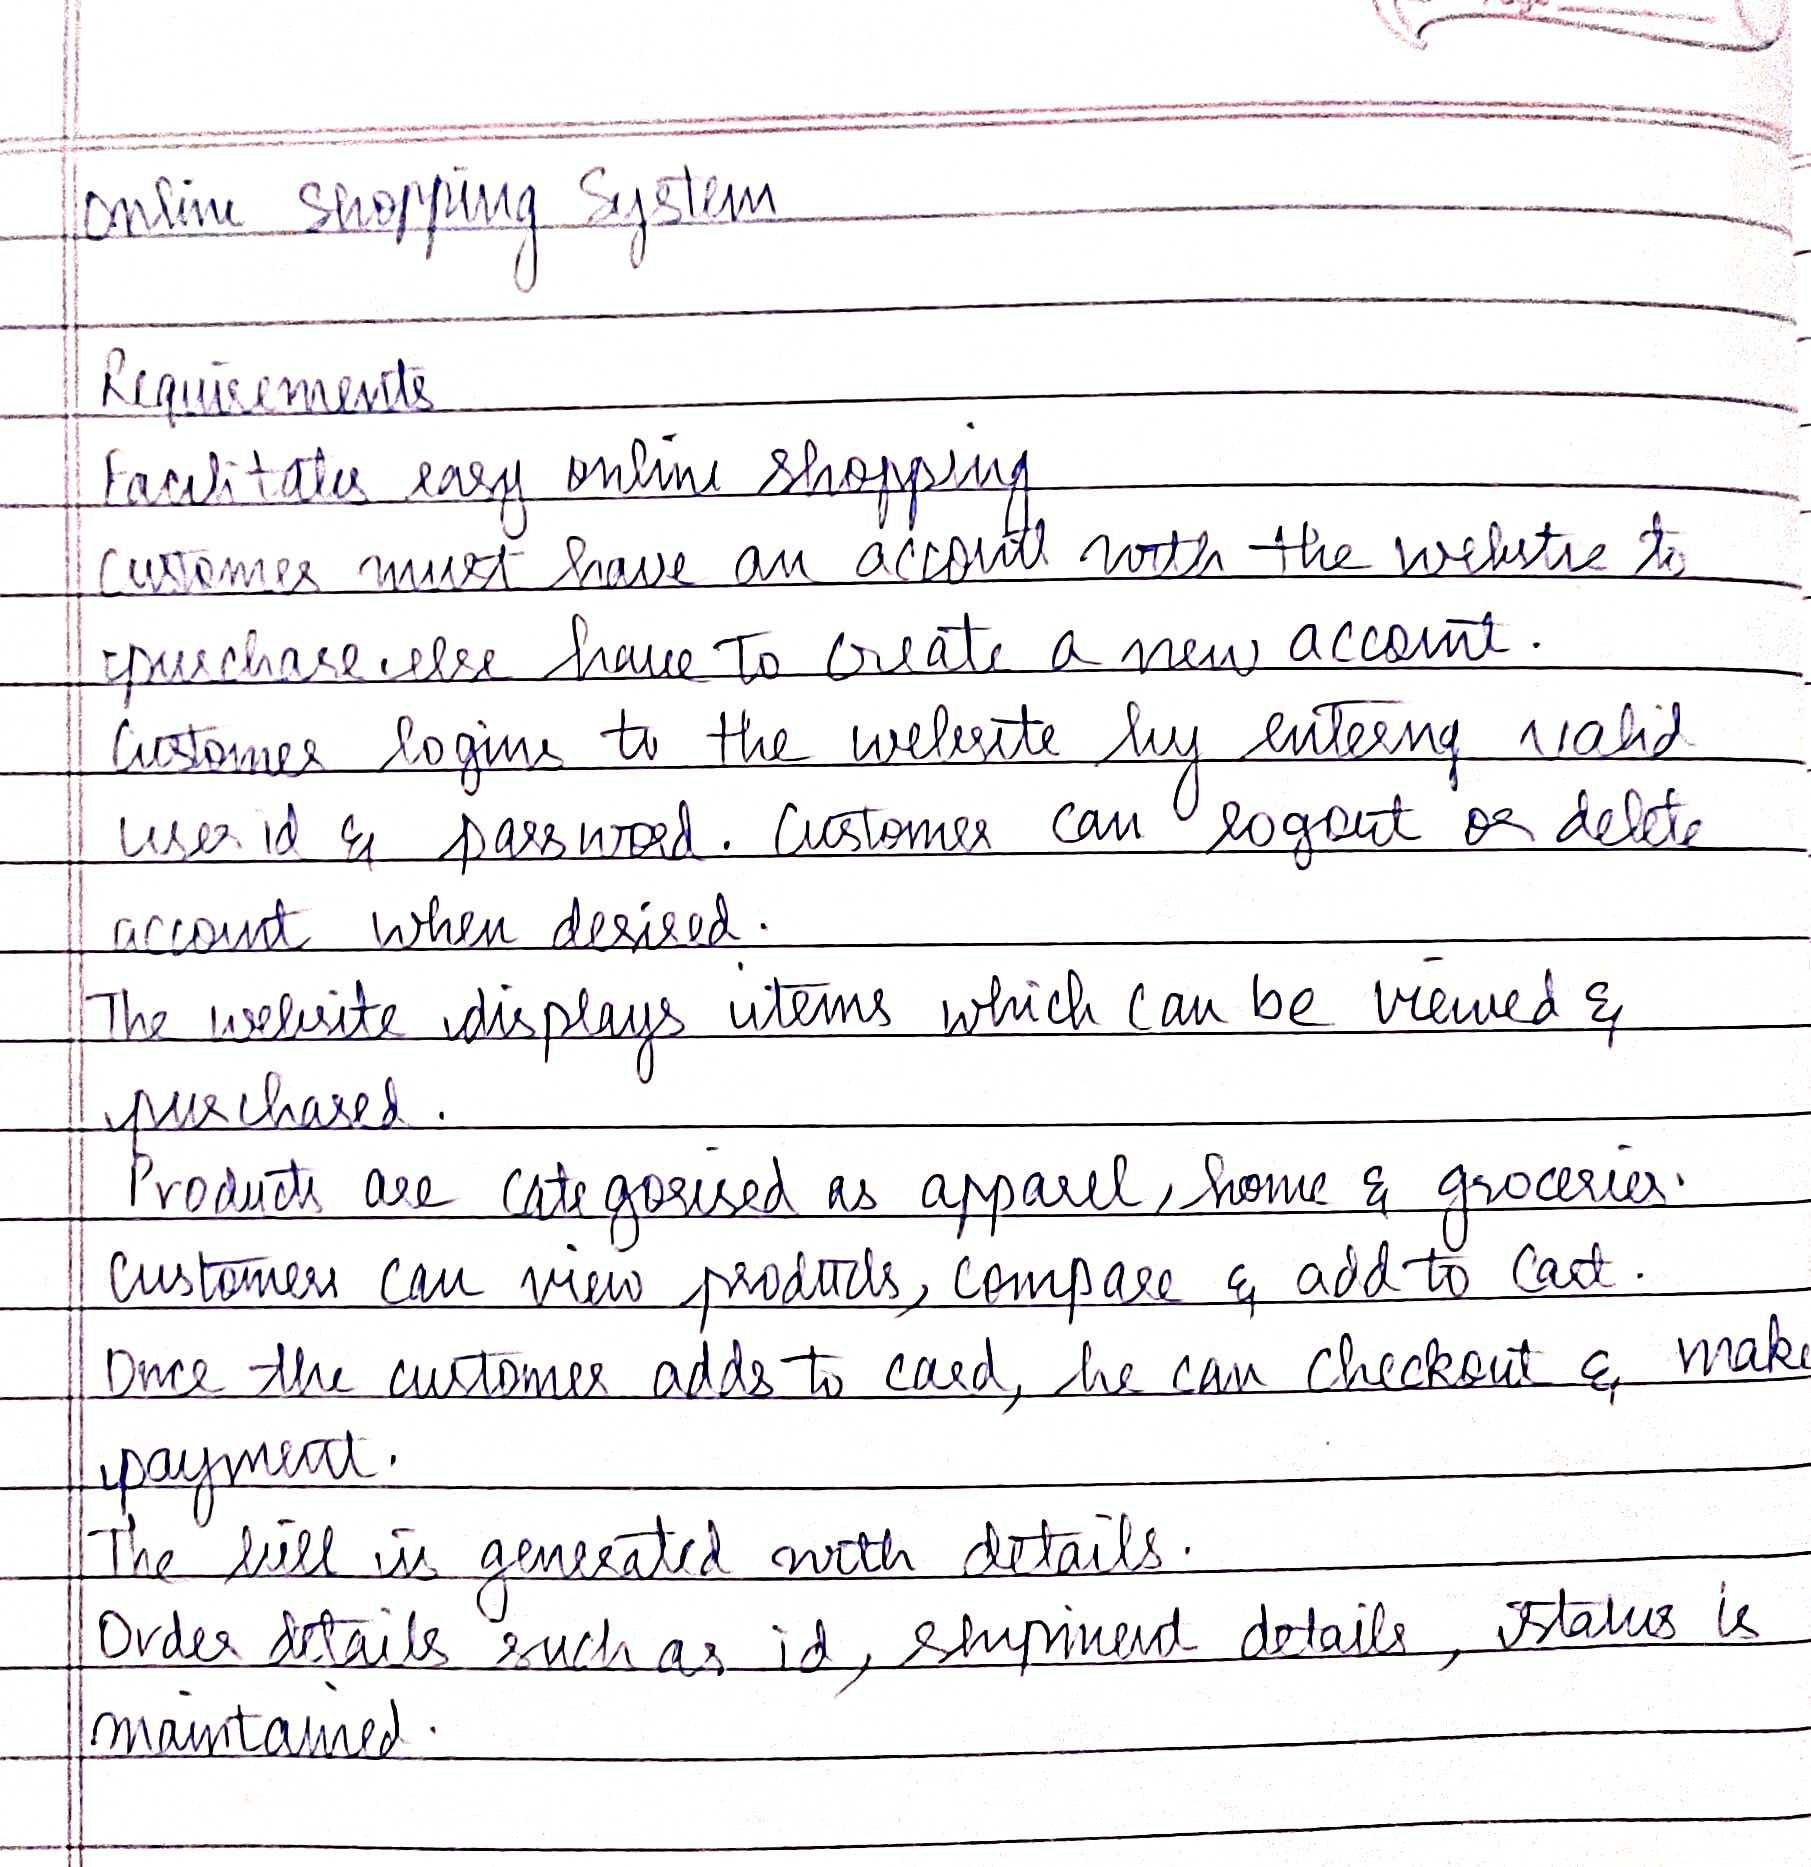 Online Shopping System
Requirements
Facilitates easy online shopping
Customer must have an account with the website to
purchase else have to create a new account.
Customer logins to the website by entering valid
user id & password. Customer can logout or delete
account when desired.
The website displays items which can be viewed &
purchased.
Products are categorised as apparel, home & groceries.
Customers can view products, compare & add to cart.
Once the customer adds to card, he can checkout & make
payment.
The bill is generated with details.
Order details such as id, shipment details, status is
maintained.